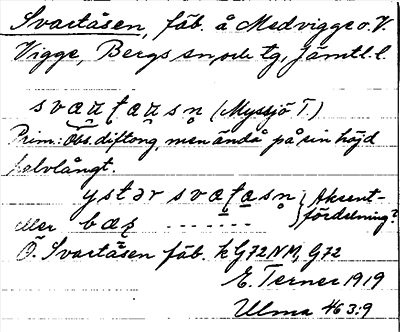 Svartåsen, fäb. å Medvigge o. V.
Vigge, Bergs sn och tg, Jämtl. l.
(Myssjö T.)
Prim: Obs. diftong, men ändå på sin höjd
halvlångt.
Aksent-
fördelning?
eller
Ö. Svartåsen fäb. k G72 NM, G72
E. Terner 1919
Ulma 463:9